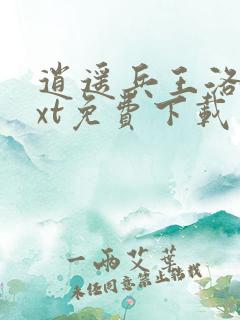 逍遥兵王洛
xt免費下載
一兩艾葉
未经同意禁止转载